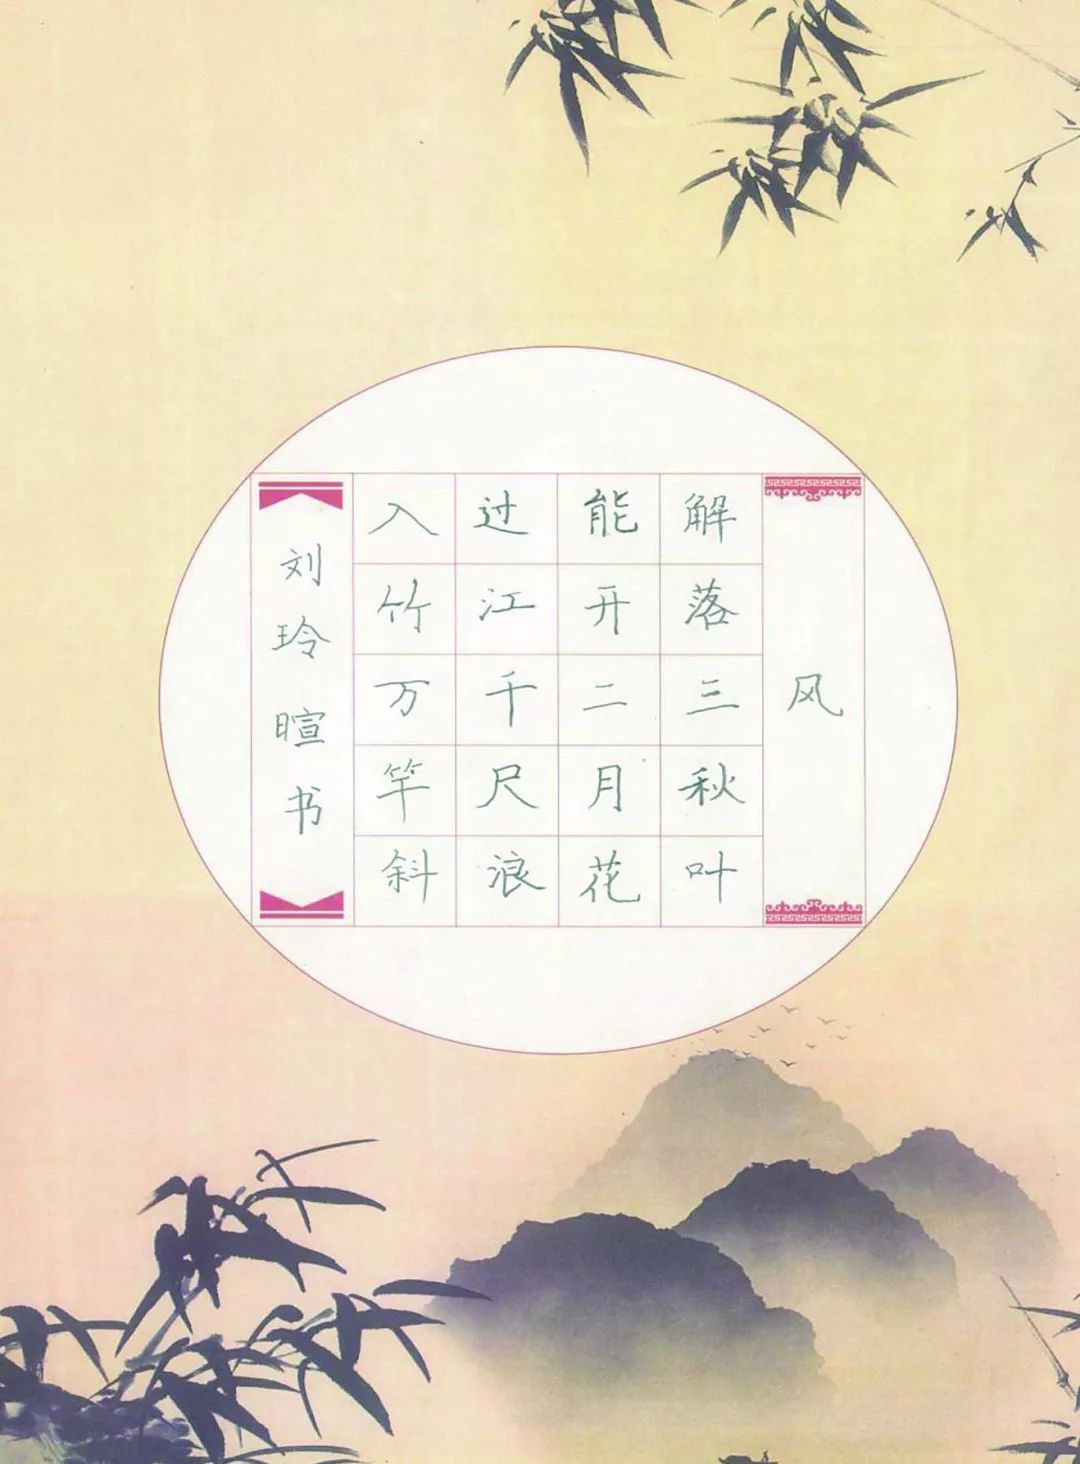 风
解落三秋叶
能开二月花
过江千尺浪
入竹万竿斜
刘玲暄书